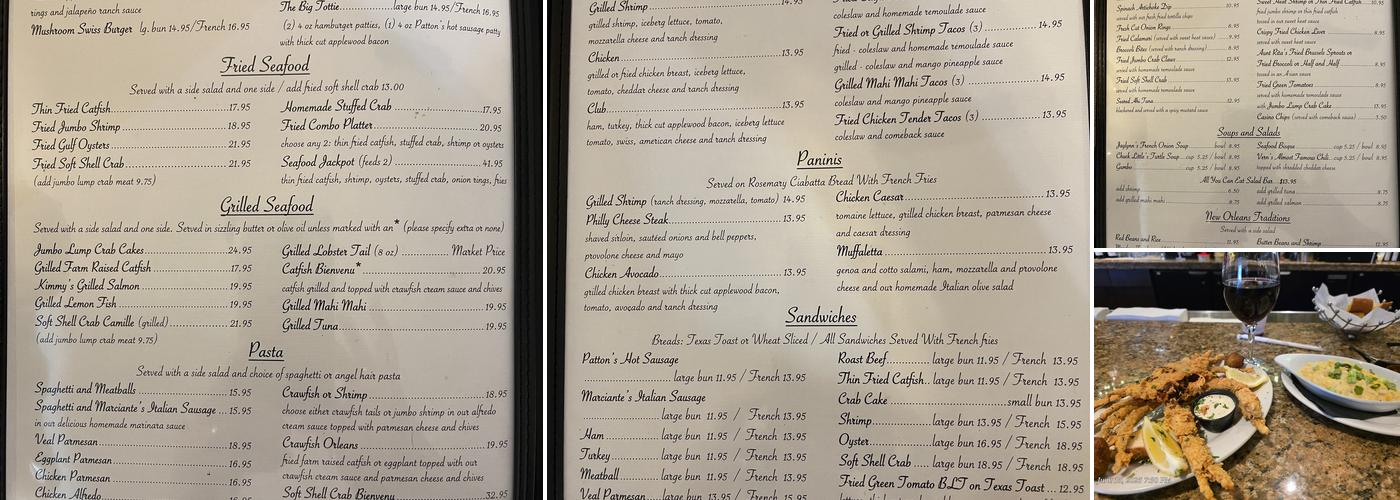 rings and jalapeño ranch sauce
Mushroom Swiss Burger lg. bun 14.95/French 16.95
The Big Tottie large bun 14.95/French 16.95
(2) 4 oz hamburger patties, (1) 4 oz Patton's hot sausage patty
with thick cut applewood bacon
Fried Seafood
Served with a side salad and one side / add fried soft shell crab 13.00
Thin Fried Catfish 17.95
Fried Jumbo Shrimp 18.95
Fried Gulf Oysters 21.95
Fried Soft Shell Crab 21.95
(add jumbo lump crab meat 9.75)
Homemade Stuffed Crab 17.95
Fried Combo Platter 20.95
choose any 2: thin fried catfish, stuffed crab, shrimp or oysters
Seafood Jackpot (feeds 2) 41.95
thin fried catfish, shrimp, oysters, stuffed crab, onion rings, fries
Grilled Seafood
Served with a side salad and one side. Served in sizzling butter or olive oil unless marked with an * (please specify extra or none)
Jumbo Lump Crab Cakes 24.95
Grilled Farm Raised Catfish 17.95
Kimmy's Grilled Salmon 19.95
Grilled Lemon Fish 19.95
Soft Shell Crab Camille (grilled) 21.95
(add jumbo lump crab meat 9.75)
Grilled Lobster Tail (8 oz) Market Price
Catfish Bienvenu* 20.95
catfish grilled and topped with crawfish cream sauce and chives
Grilled Mahi Mahi 19.95
Grilled Tuna 19.95
Pasta
Served with a side salad and choice of spaghetti or angel hair pasta
Spaghetti and Meatballs 15.95
Spaghetti and Marciante's Italian Sausage 15.95
in our delicious homemade marinara sauce
Veal Parmesan 18.95
Eggplant Parmesan 16.95
Chicken Parmesan 16.95
Chicken Alfredo
Crawfish or Shrimp 18.95
choose either crawfish tails or jumbo shrimp in our alfredo
cream sauce topped with parmesan cheese and chives
Crawfish Orleans 19.95
fried farm raised catfish or eggplant topped with our
crawfish cream sauce and parmesan cheese and chives
Soft Shell Crab Bienvenu 32.95
Grilled Shrimp 14.95
grilled shrimp, iceberg lettuce, tomato,
mozzarella cheese and ranch dressing
Chicken 13.95
grilled or fried chicken breast, iceberg lettuce,
tomato, cheddar cheese and ranch dressing
Club 13.95
ham, turkey, thick cut applewood bacon, iceberg lettuce
tomato, swiss, american cheese and ranch dressing
coleslaw and homemade remoulade sauce
Fried or Grilled Shrimp Tacos (3) 14.95
fried - coleslaw and homemade remoulade sauce
grilled - coleslaw and mango pineapple sauce
Grilled Mahi Mahi Tacos (3) 14.95
coleslaw and mango pineapple sauce
Fried Chicken Tender Tacos (3) 13.95
coleslaw and comeback sauce
Paninis
Served on Rosemary Ciabatta Bread With French Fries
Grilled Shrimp (ranch dressing, mozzarella, tomato) 14.95
Philly Cheese Steak 13.95
shaved sirloin, sautéed onions and bell peppers,
provolone cheese and mayo
Chicken Avocado 13.95
grilled chicken breast with thick cut applewood bacon,
tomato, avocado and ranch dressing
Chicken Caesar 13.95
romaine lettuce, grilled chicken breast, parmesan cheese
and caesar dressing
Muffaletta 13.95
genoa and cotto salami, ham, mozzarella and provolone
cheese and our homemade Italian olive salad
Sandwiches
Breads: Texas Toast or Wheat Sliced / All Sandwiches Served With French fries
Patton's Hot Sausage
large bun 11.95 / French 13.95
Marciante's Italian Sausage
large bun 11.95 / French 13.95
Ham large bun 11.95 / French 13.95
Turkey large bun 11.95 / French 13.95
Meatball large bun 11.95 / French 13.95
Veal Parmesan large bun 13.95 / French 15.95
Roast Beef large bun 11.95 / French 13.95
Thin Fried Catfish large bun 11.95 / French 13.95
Crab Cake small bun 13.95
Shrimp large bun 13.95 / French 15.95
Oyster large bun 16.95 / French 18.95
Soft Shell Crab large bun 18.95 / French 18.95
Fried Green Tomato BLT on Texas Toast 12.95
Spinach Artichoke Dip 10.95
served with our fresh fried tortilla chips
Fresh Cut Onion Rings
Fried Calamari (served with sweet heat sauce) 9.95
Broccoli Bites (served with ranch dressing) 8.95
Fried Jumbo Crab Claws 12.95
served with homemade remoulade sauce
Fried Soft Shell Crab 13.95
served with homemade remoulade sauce
Seared Ahi Tuna 12.95
blackened and served with a spicy mustard sauce
Sweet Heat Shrimp or Thin Fried Catfish
fried jumbo shrimp or thin fried catfish
tossed in our sweet heat sauce
Crispy Fried Chicken Livers 8.95
served with sweet heat sauce
Aunt Rita's Fried Brussels Sprouts or
Fried Broccoli or Half and Half 8.95
tossed in an Asian sauce
Fried Green Tomatoes 8.95
served with homemade remoulade sauce
with Jumbo Lump Crab Cake 13.95
Casino Chips (served with comeback sauce) 5.50
Soups and Salads
Jaylynn's French Onion Soup bowl 8.95
Chuck Little's Turtle Soup cup 5.25 / bowl 8.95
Gumbo cup 5.25 / bowl 8.95
Seafood Bisque cup 5.25 / bowl 8.95
Vern's Almost Famous Chili cup 5.25 / bowl 8.95
topped with shredded cheddar cheese
All You Can Eat Salad Bar $13.95
add shrimp 6.50
add grilled mahi mahi 8.75
add grilled tuna 8.75
add grilled salmon 8.75
New Orleans Traditions
Served with a side salad
Red Beans and Rice 11.95
Butter Beans and Shrimp 12.95